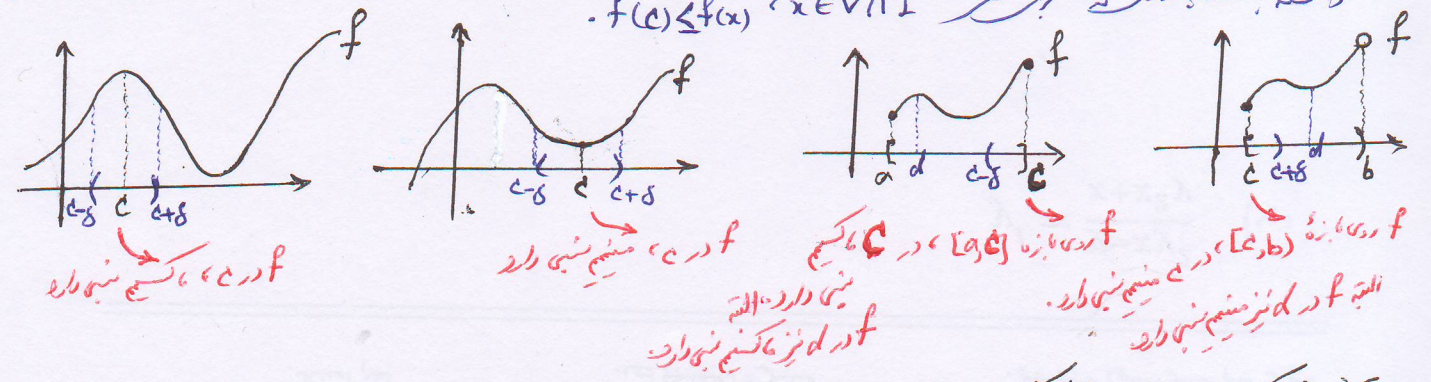 f(c) ≤ f(x) ، x ∈ V∩I
f
c-δ c c+δ
f در c، ماکسیمم نسبی دارد
f
c-δ c c+δ
f در c، مینیمم نسبی دارد
f
a d c-δ c
f روی بازه [a,c]، در c ماکسیمم
نسبی دارد. البته
f در d نیز ماکسیمم نسبی دارد.
f
c c+δ d b
f روی بازهٔ [c,b)، در c مینیمم نسبی دارد.
البته f در d نیز مینیمم نسبی دارد